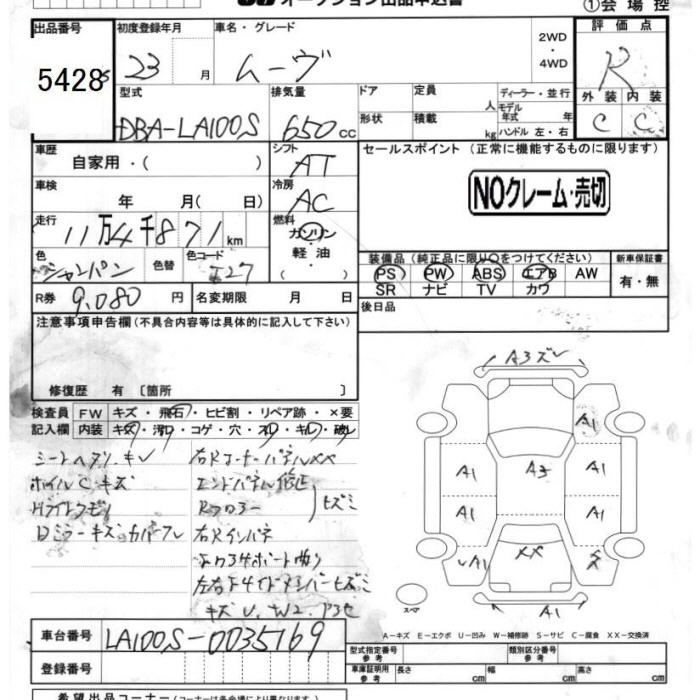 オークション出品申込書
①会場控
出品番号 初度登録年月 車名・グレード 2WD・4WD 評価点
5428 23 月 ムーヴ R
型式 排気量 ドア 定員 人 ディーラー・並行 外装 内装
DBA-LA100S 650cc 形状 積載 kg モデル年式 年 ハンドル 左・右 C C
車歴 自家用・( ) シフト AT セールスポイント(正常に機能するものに限ります)
車検 年 月( 日) 冷房 AC NOクレーム・売切
走行 11万4千871km 燃料 ガソリン・軽油・( )
色 シャンパン 色替 色コード T27
装備品(純正品に限り○をつけてください) 新車保証書
PS PW ABS エアB AW 有・無
SR ナビ TV カワ
R券 9,080円 名変期限 月 日 後日品
注意事項申告欄(不具合内容等は具体的に記入して下さい)
修復歴 有〔箇所 〕
検査員記入欄 FW キズ・飛石・ヒビ割・リペア跡・×要
内装 キズ・汚れ・コゲ・穴・スレ・キレ・破レ
シートヘタリ・キレ
ホイルC・キズ
Hライトクモリ
Dミラーキズ、カバーワレ
右Rコーナーパネル××
エンドパネル修正
Rフロアー
ヒズミ
右Rインパネ
A3ズレ
A1
A1 A3 A1
A1 A1
UA1 XX
スペア
A1
A-キズ E-エクボ U-凹み W-補修跡 S-サビ C-腐食 XX-交換済
車台番号 LA100S-0035169
型式指定番号 参考 類別区分番号 参考
登録番号
車庫証明用 参考 長さ cm 幅 cm 高さ cm
希望出品コーナー(コーナーは各会場により異なります)